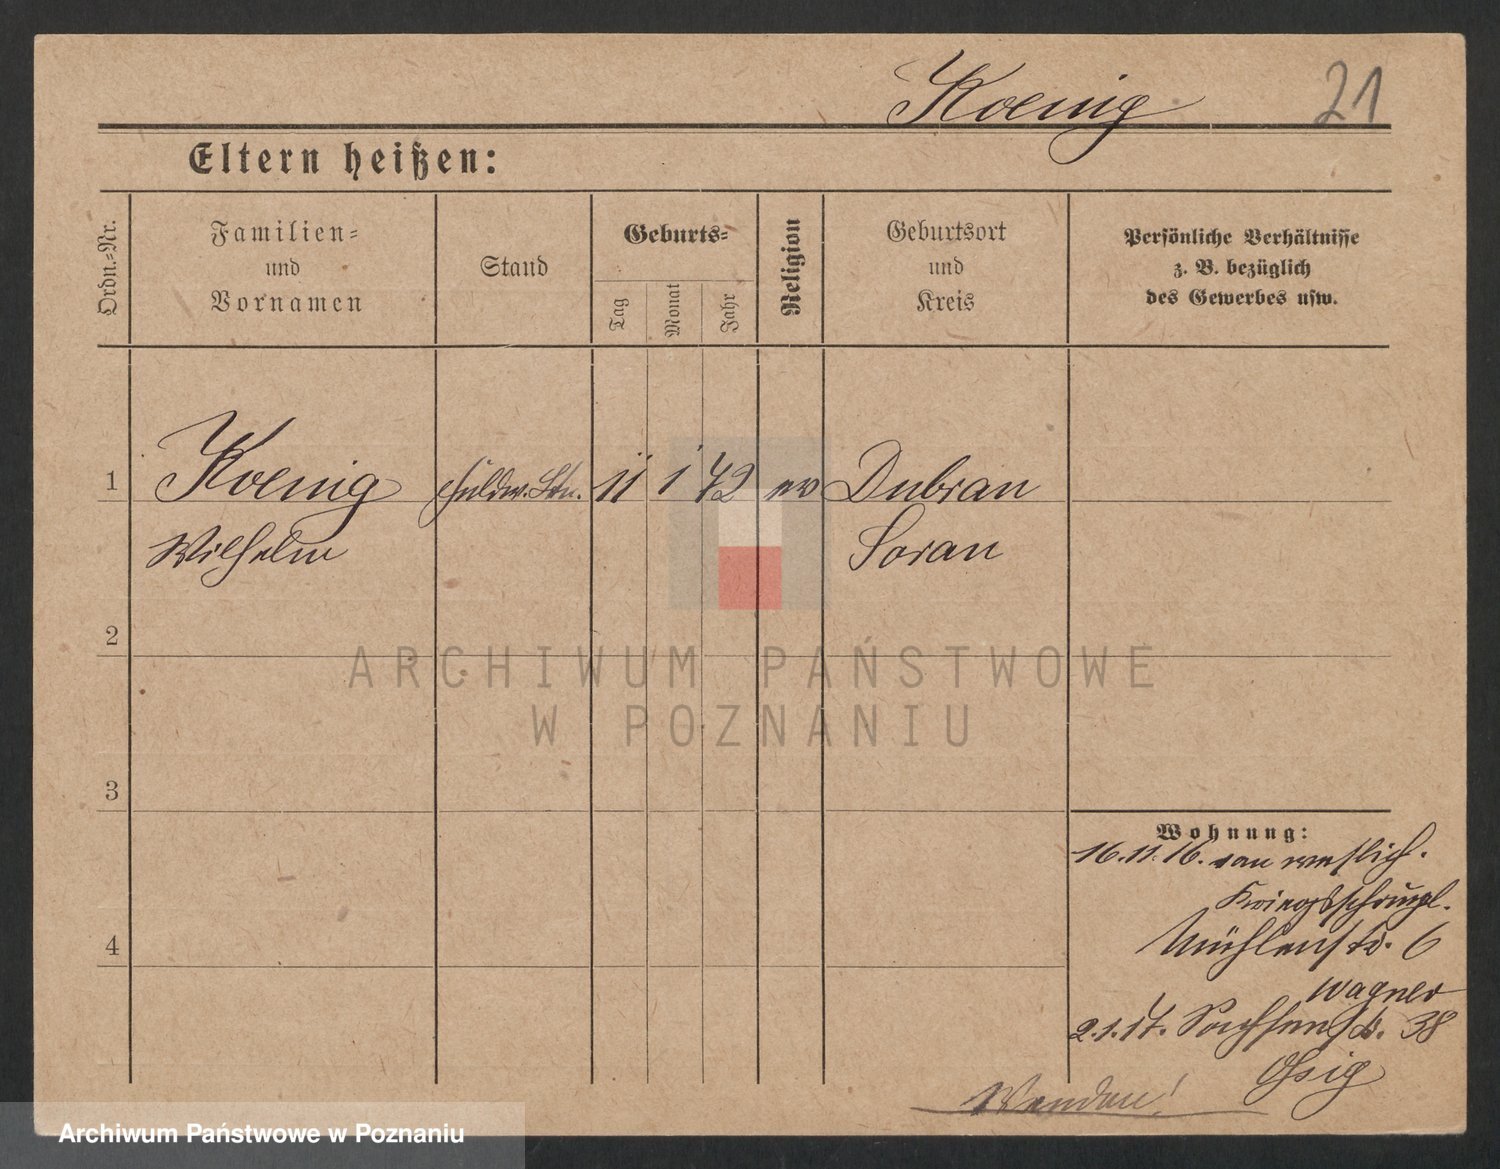 Koenig 21
Eltern heißen:
Ordn.-Nr.
Familien-
und
Vornamen
Stand
Geburts-
Tag
Monat
Jahr
Religion
Geburtsort
und
Kreis
Persönliche Verhältnisse
z. B. bezüglich
des Gewerbes usw.
1 Koenig 11 1 72 ev Dubrau
Wilhelm Sorau
2
ARCHIWUM PAŃSTWOWE
W POZNANIU
3
Wohnung:
16.11.16. von westlich.
Kriegsschaupl.
4 Mühlenstr. 6
Wagner
2.1.17. Sachsenstr. 38
Ossig
Wenden!
Archiwum Państwowe w Poznaniu